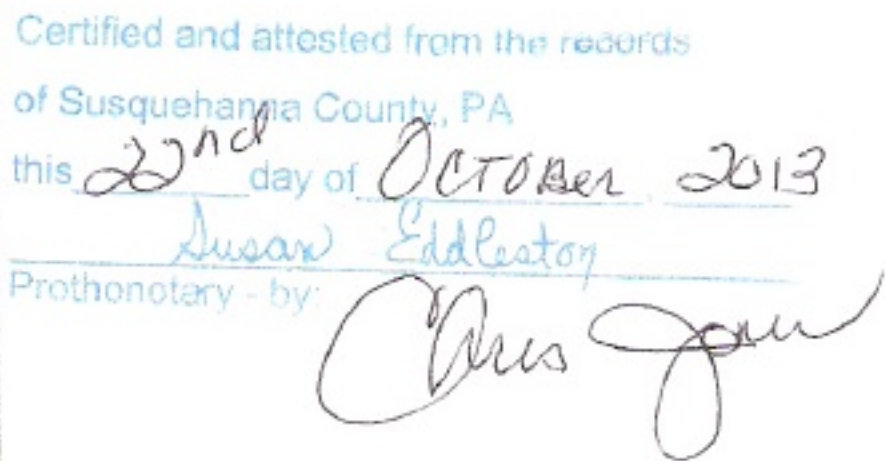 Certified and attested from the records
of Susquehanna County, PA
this 22nd day of October 2013
Susan Eddleston
Prothonotary - by:
Chris